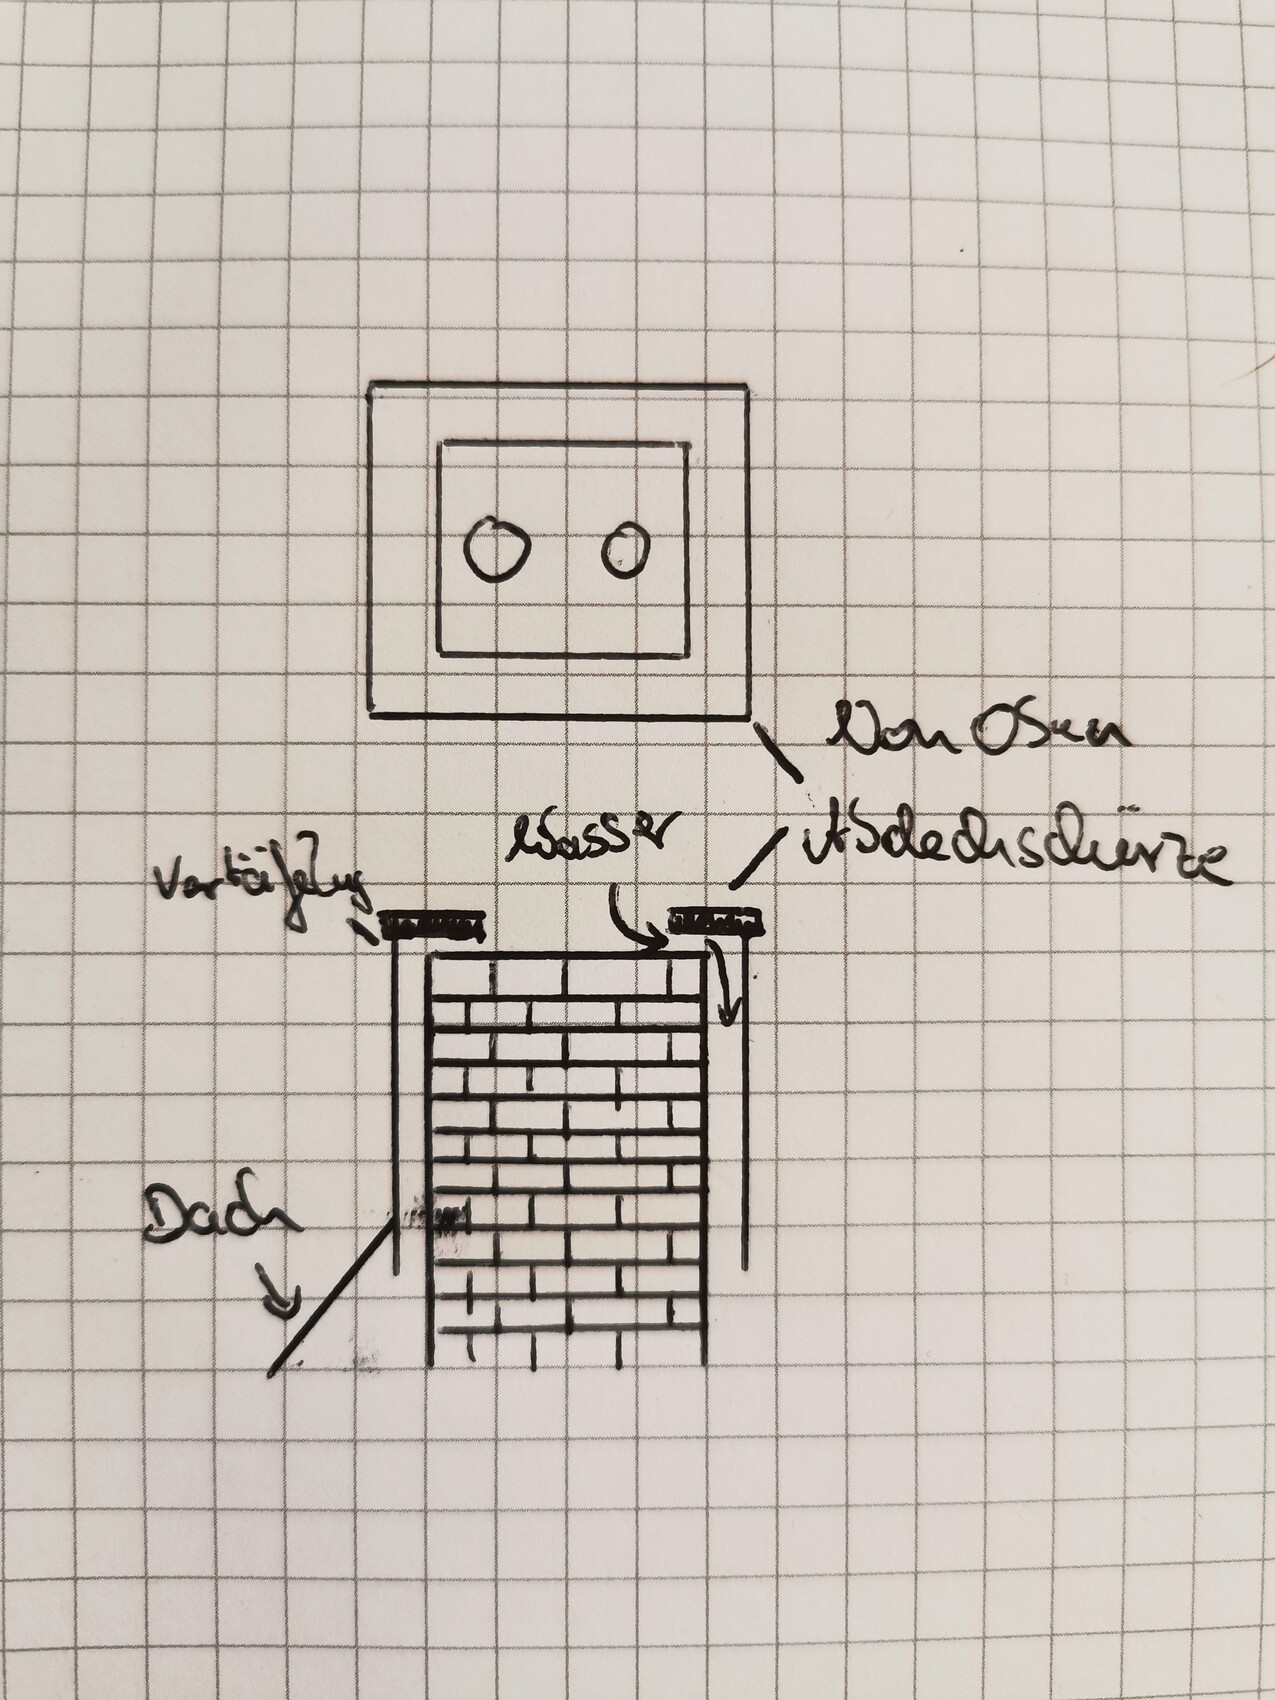 Von Oben
Wasser
Abdeckschürze
Vertäfelung
Dach